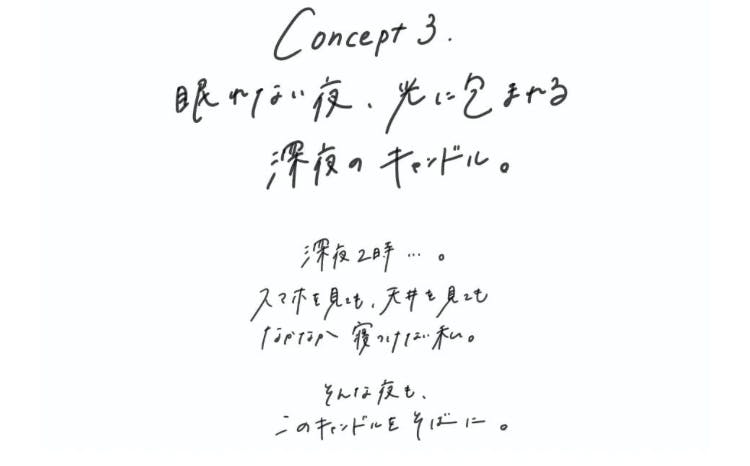 Concept 3.
眠れない夜、光に包まれる
深夜のキャンドル。
深夜2時…。
スマホを見ても、天井を見ても
なかなか寝つけない私。
そんな夜も、
このキャンドルをそばに。